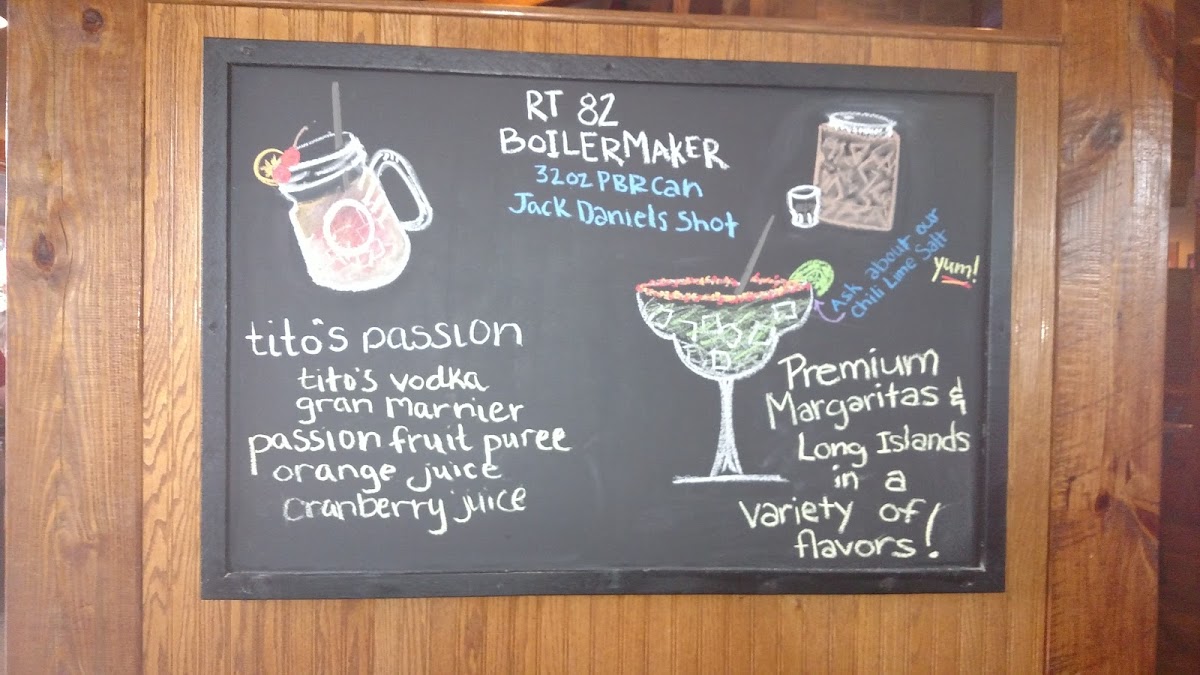 RT 82
BOILERMAKER
32oz PBR Can
Jack Daniels Shot
Ask about our
Chili Lime Salt
yum!
tito's passion
tito's vodka
gran marnier
passion fruit puree
orange juice
cranberry juice
Premium
Margaritas &
Long Islands
in a
variety of
flavors!